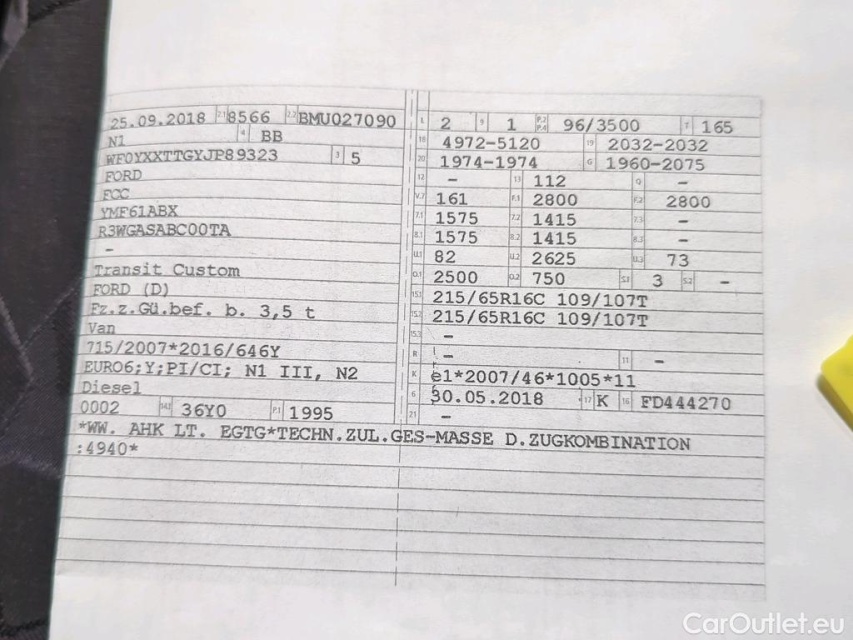 25.09.2018 2.1 8566 2.2 BMU027090
N1 4 BB
WF0YXXTTGYJP89323 3 5
FORD
FCC
YMF61ABX
R3WGASABC00TA
-
Transit Custom
FORD (D)
Fz.z.Gü.bef. b. 3,5 t
Van
715/2007*2016/646Y
EURO6;Y;PI/CI; N1 III, N2
Diesel
0002 14.1 36Y0 P.1 1995
L 2 9 1 P.2 P.4 96/3500 T 165
18 4972-5120 19 2032-2032
20 1974-1974 G 1960-2075
12 - 13 112 Q -
V.7 161 F.1 2800 F.2 2800
7.1 1575 7.2 1415 7.3 -
8.1 1575 8.2 1415 8.3 -
U.1 82 U.2 2625 U.3 73
O.1 2500 O.2 750 S.1 3 S.2 -
15.1 215/65R16C 109/107T
15.2 215/65R16C 109/107T
15.3 -
R - 11 -
K e1*2007/46*1005*11
6 30.05.2018 17 K 16 FD444270
21 -
*WW. AHK LT. EGTG*TECHN.ZUL.GES-MASSE D.ZUGKOMBINATION
:4940*
CarOutlet.eu